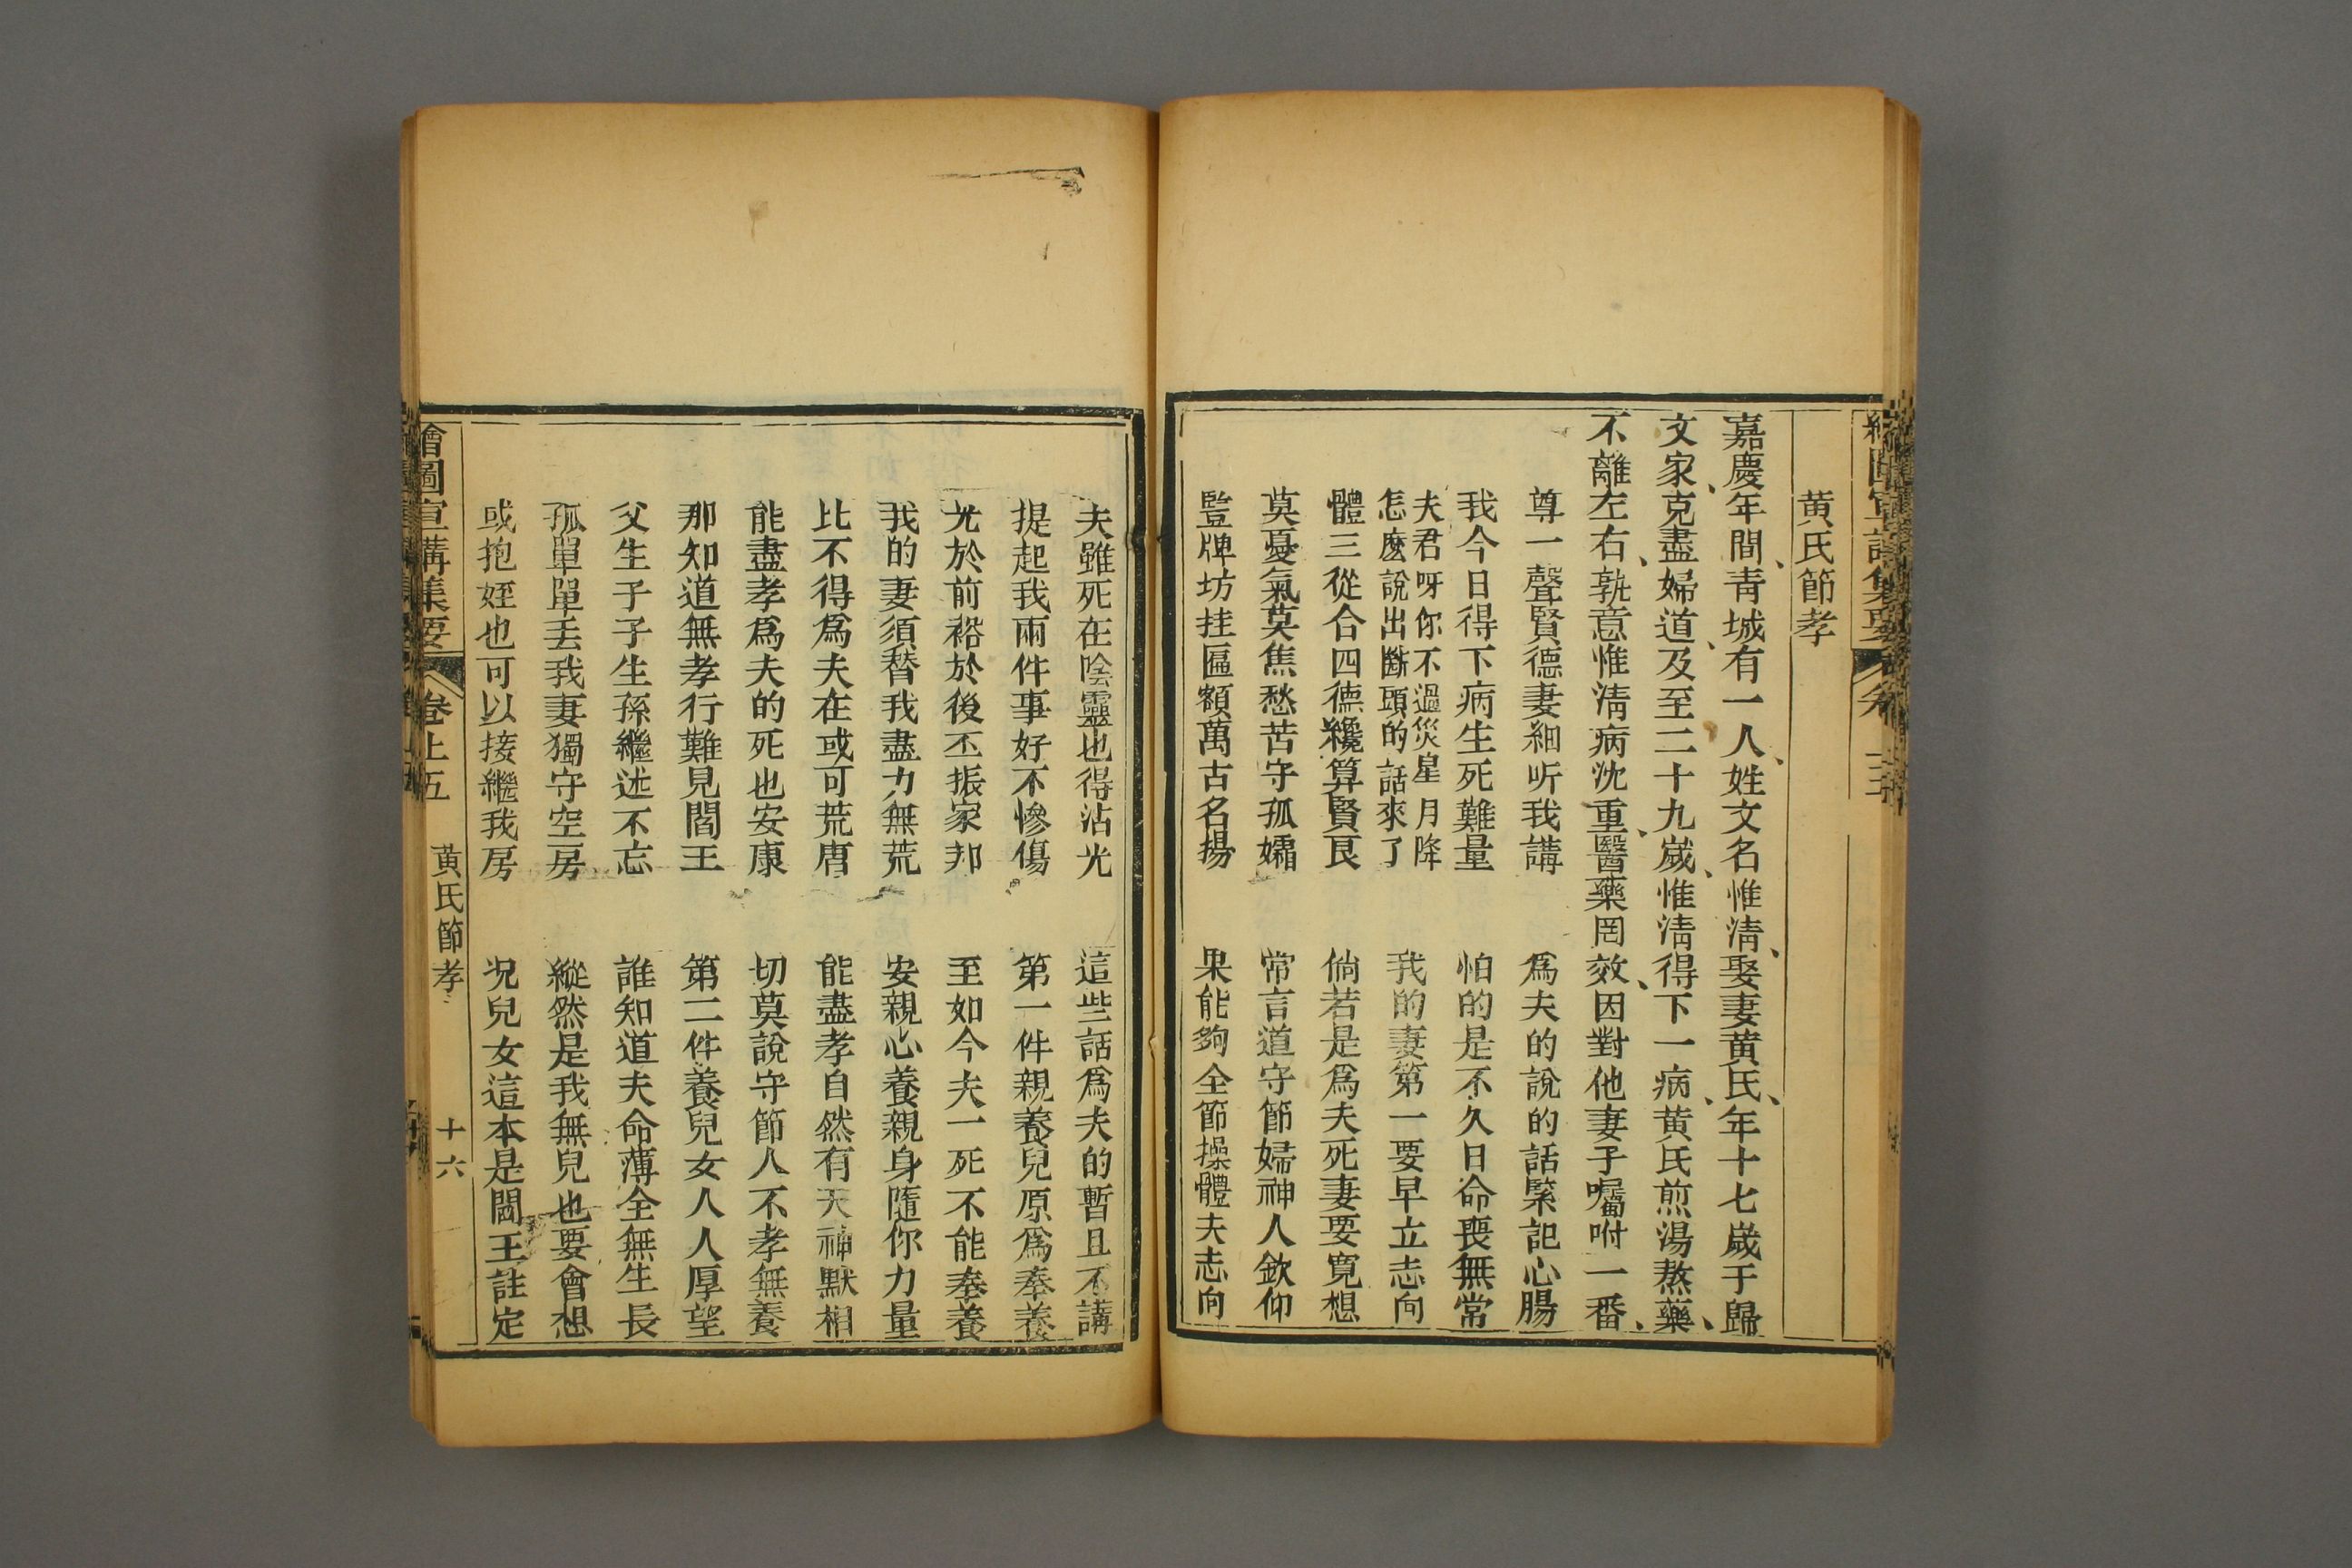 黄氏節孝
嘉慶年間青城有一人姓文名惟淸娶妻黄氏年十七歲于歸
文家克盡婦道及至二十九歲惟淸得下一病黄氏煎湯熬藥
不離左右孰意惟淸病沈重醫藥罔效因對他妻子囑咐一番
尊一聲賢德妻細听我講　爲夫的說的話緊記心腸
我今日得下病生死難量　怕的是不久日命喪無常
夫君呀你不過災星月降
怎麽說出斷頭的話來了
我的妻第一要早立志向
體三從合四德纔算賢良　倘若是爲夫死妻要寬想
莫憂氣莫焦愁苦守孤孀　常言道守節婦神人欽仰
豎牌坊挂匾額萬古名揚　果能夠全節操體夫志向
夫雖死在陰靈也得沾光　這些話爲夫的暫且不講
提起我兩件事好不慘傷　第一件親養兒原爲奉養
光於前裕於後丕振家邦　至如今夫一死不能奉養
我的妻須替我盡力無荒　安親心養親身隨你力量
比不得爲夫在或可荒唐　能盡孝自然有天神默相
能盡孝爲夫的死也安康　切莫說守節人不孝無養
那知道無孝行難見閻王　第二件養兒女人人厚望
父生子子生孫繼述不忘　誰知道夫命薄全無生長
孤單單丢我妻獨守空房　縱然是我無兒也要會想
或抱姪也可以接繼我房　况兒女這本是閻王註定
繪圖宣講集要　卷上五　黄氏節孝　十六